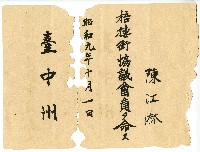 陳江
梧棲街協議會員ヲ命ス
昭和九年十月一日
臺中州